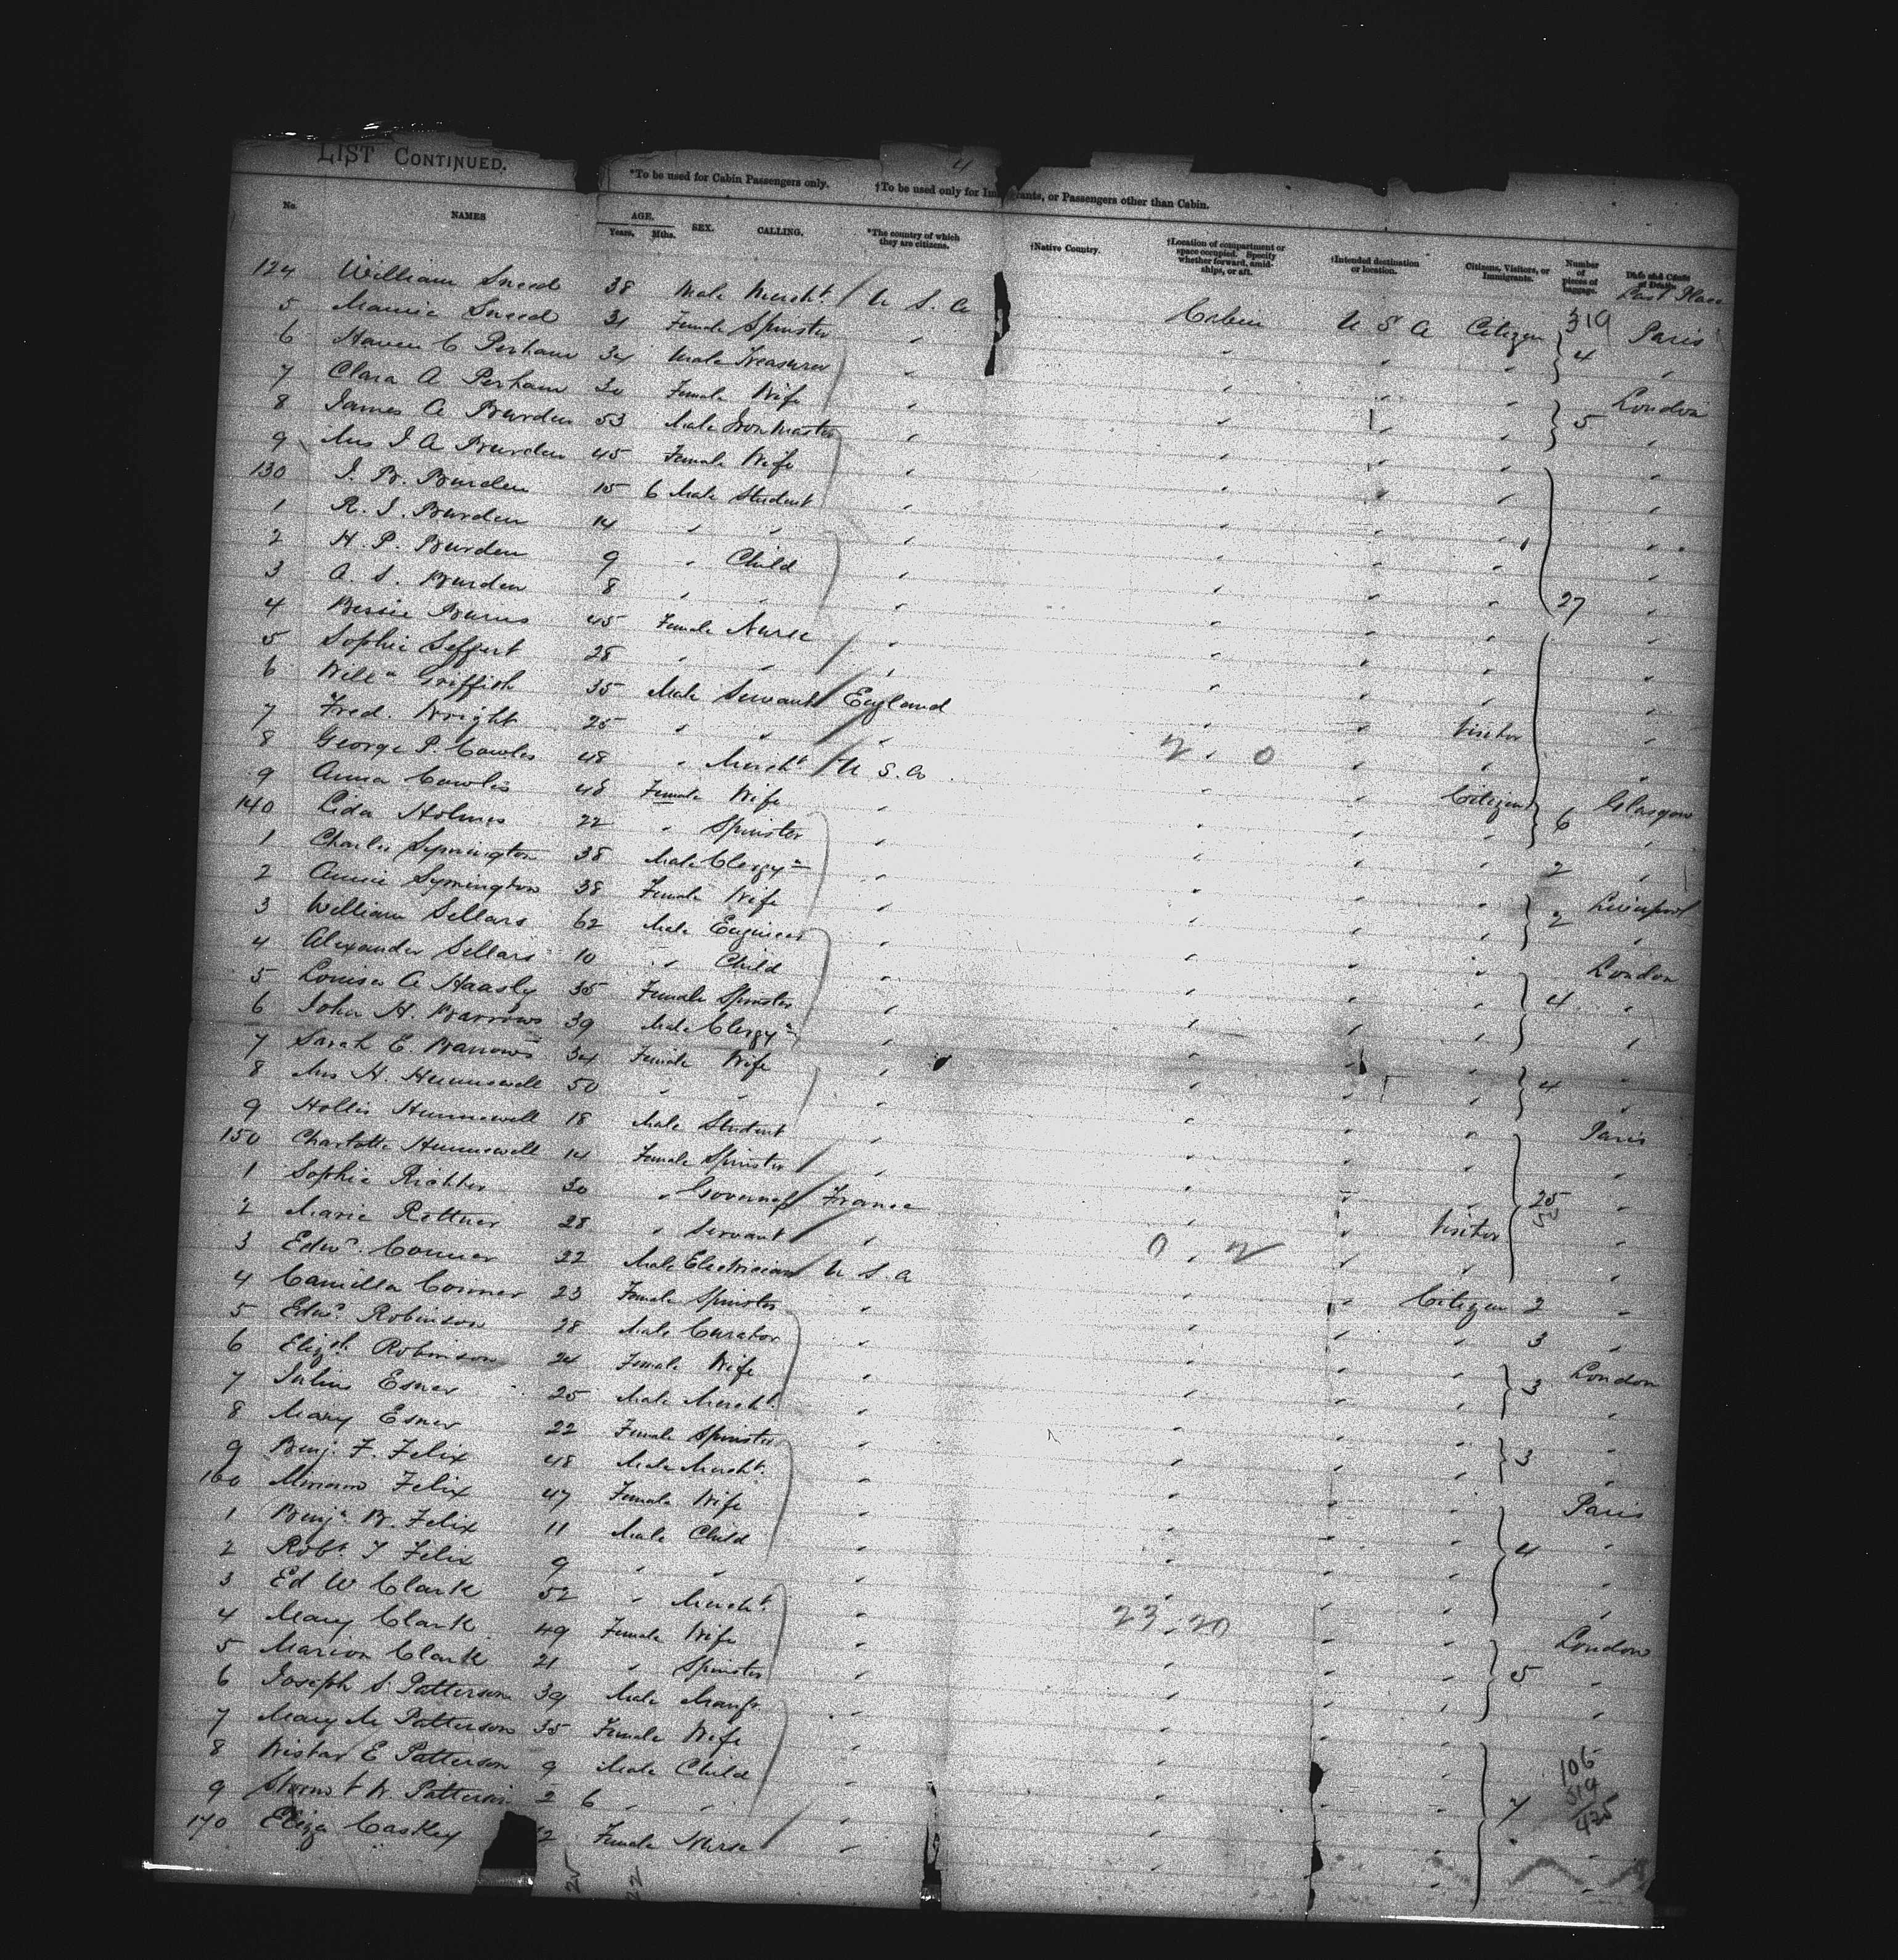 4
LIST CONTINUED.
*To be used for Cabin Passengers only. †To be used only for Immigrants, or Passengers other than Cabin.
No. NAMES AGE. Years. Mths. SEX. CALLING. *The country of which they are citizens. †Native Country. †Location of compartment or space occupied. Specify whether forward, amidships, or aft. †Intended destination or location. Citizens, Visitors, or Immigrants. Number of pieces of baggage. Date and Cause of Death.
Last Place
319
124 William Sneed 38 Male Mercht. U S. A Cabin U S A Citizen Paris
5 Mamie Sneed 31 Female Spinster " " " " 4 "
6 Haven C Perham 34 Male Treasurer " " " " London
7 Clara A Perham 30 Female Wife " " " " 5 "
8 James A Burden 53 Male Iron Master " " " " "
9 Mrs J A Burden 45 Female Wife " " " " "
130 J. B. Burden 15 6 Male Student " " " " "
1 R. J. Burden 14 " " " " " " "
2 H. P. Burden 9 " Child " " " " 27 "
3 A. S. Burden 8 " " " " " " "
4 Bessie Burns 45 Female Nurse " " " " "
5 Sophie Seffert 28 " " " " " " "
6 Willm Griffith 35 Male Servant England " " Visitor "
7 Fred. Wright 25 " " " 2 . 0 " " "
8 George P. Cowles 48 " Mercht. U S. A " " Citizen Glasgow
9 Anna Cowles 48 Female Wife " " " " 6 "
140 Lida Holmes 22 " Spinster " " " " 2 "
1 Charles Symington 38 Male Clergyn " " " " Liverpool
2 Annie Symington 38 Female Wife " " " " 2 "
3 William Sellars 62 Male Engineer " " " " London
4 Alexander Sellars 10 " Child " " " " 4 "
5 Louisa A Haasly 35 Female Spinster " " " " "
6 John H. Barrows 39 Male Clergyn " " " " "
7 Sarah E. Barrows 34 Female Wife " " " " 4 "
8 Mrs H. Hunnewell 50 " " " " " " Paris
9 Hollis Hunnewell 18 Male Student " " " " "
150 Charlotte Hunnewell 14 Female Spinster " " " " 25 "
1 Sophie Richter 30 " Governess France " " Visitor "
2 Marie Rettner 28 " Servant " 0 . 2 " " "
3 Edwd. Conner 32 Male Electrician U S. A " " Citizen 2 "
4 Camilla Conner 23 Female Spinster " " " " 3 "
5 Edwd. Robinson 28 Male Curator " " " " London
6 Elizth Robinson 24 Female Wife " " " " 3 "
7 Julius Esner 25 Male Mercht. " " " " "
8 Mary Esner 22 Female Spinster " " " " 3 "
9 Benj. F. Felix 48 Male Mercht. " " " " Paris
160 Felix 47 Female Wife " " " " "
1 Benjn. B. Felix 11 Male Child " " " " 4 "
2 Robt. T Felix 9 " " " " " " "
3 Ed W Clark 52 " Mercht. " 23 . 20 " " London
4 Mary Clark 49 Female Wife " " " " 5 "
5 Marion Clark 21 " Spinster " " " " "
6 Joseph S. Patterson 39 Male Manfr. " " " "
7 Mary M Patterson 35 Female Wife " " " "
8 Wistar E Patterson 9 Male Child " " " "
9 W. Patterson 2 6 " " " " " " 7
170 Eliza Caskey 2 Female Nurse " " " " "
106
319
425
25 22